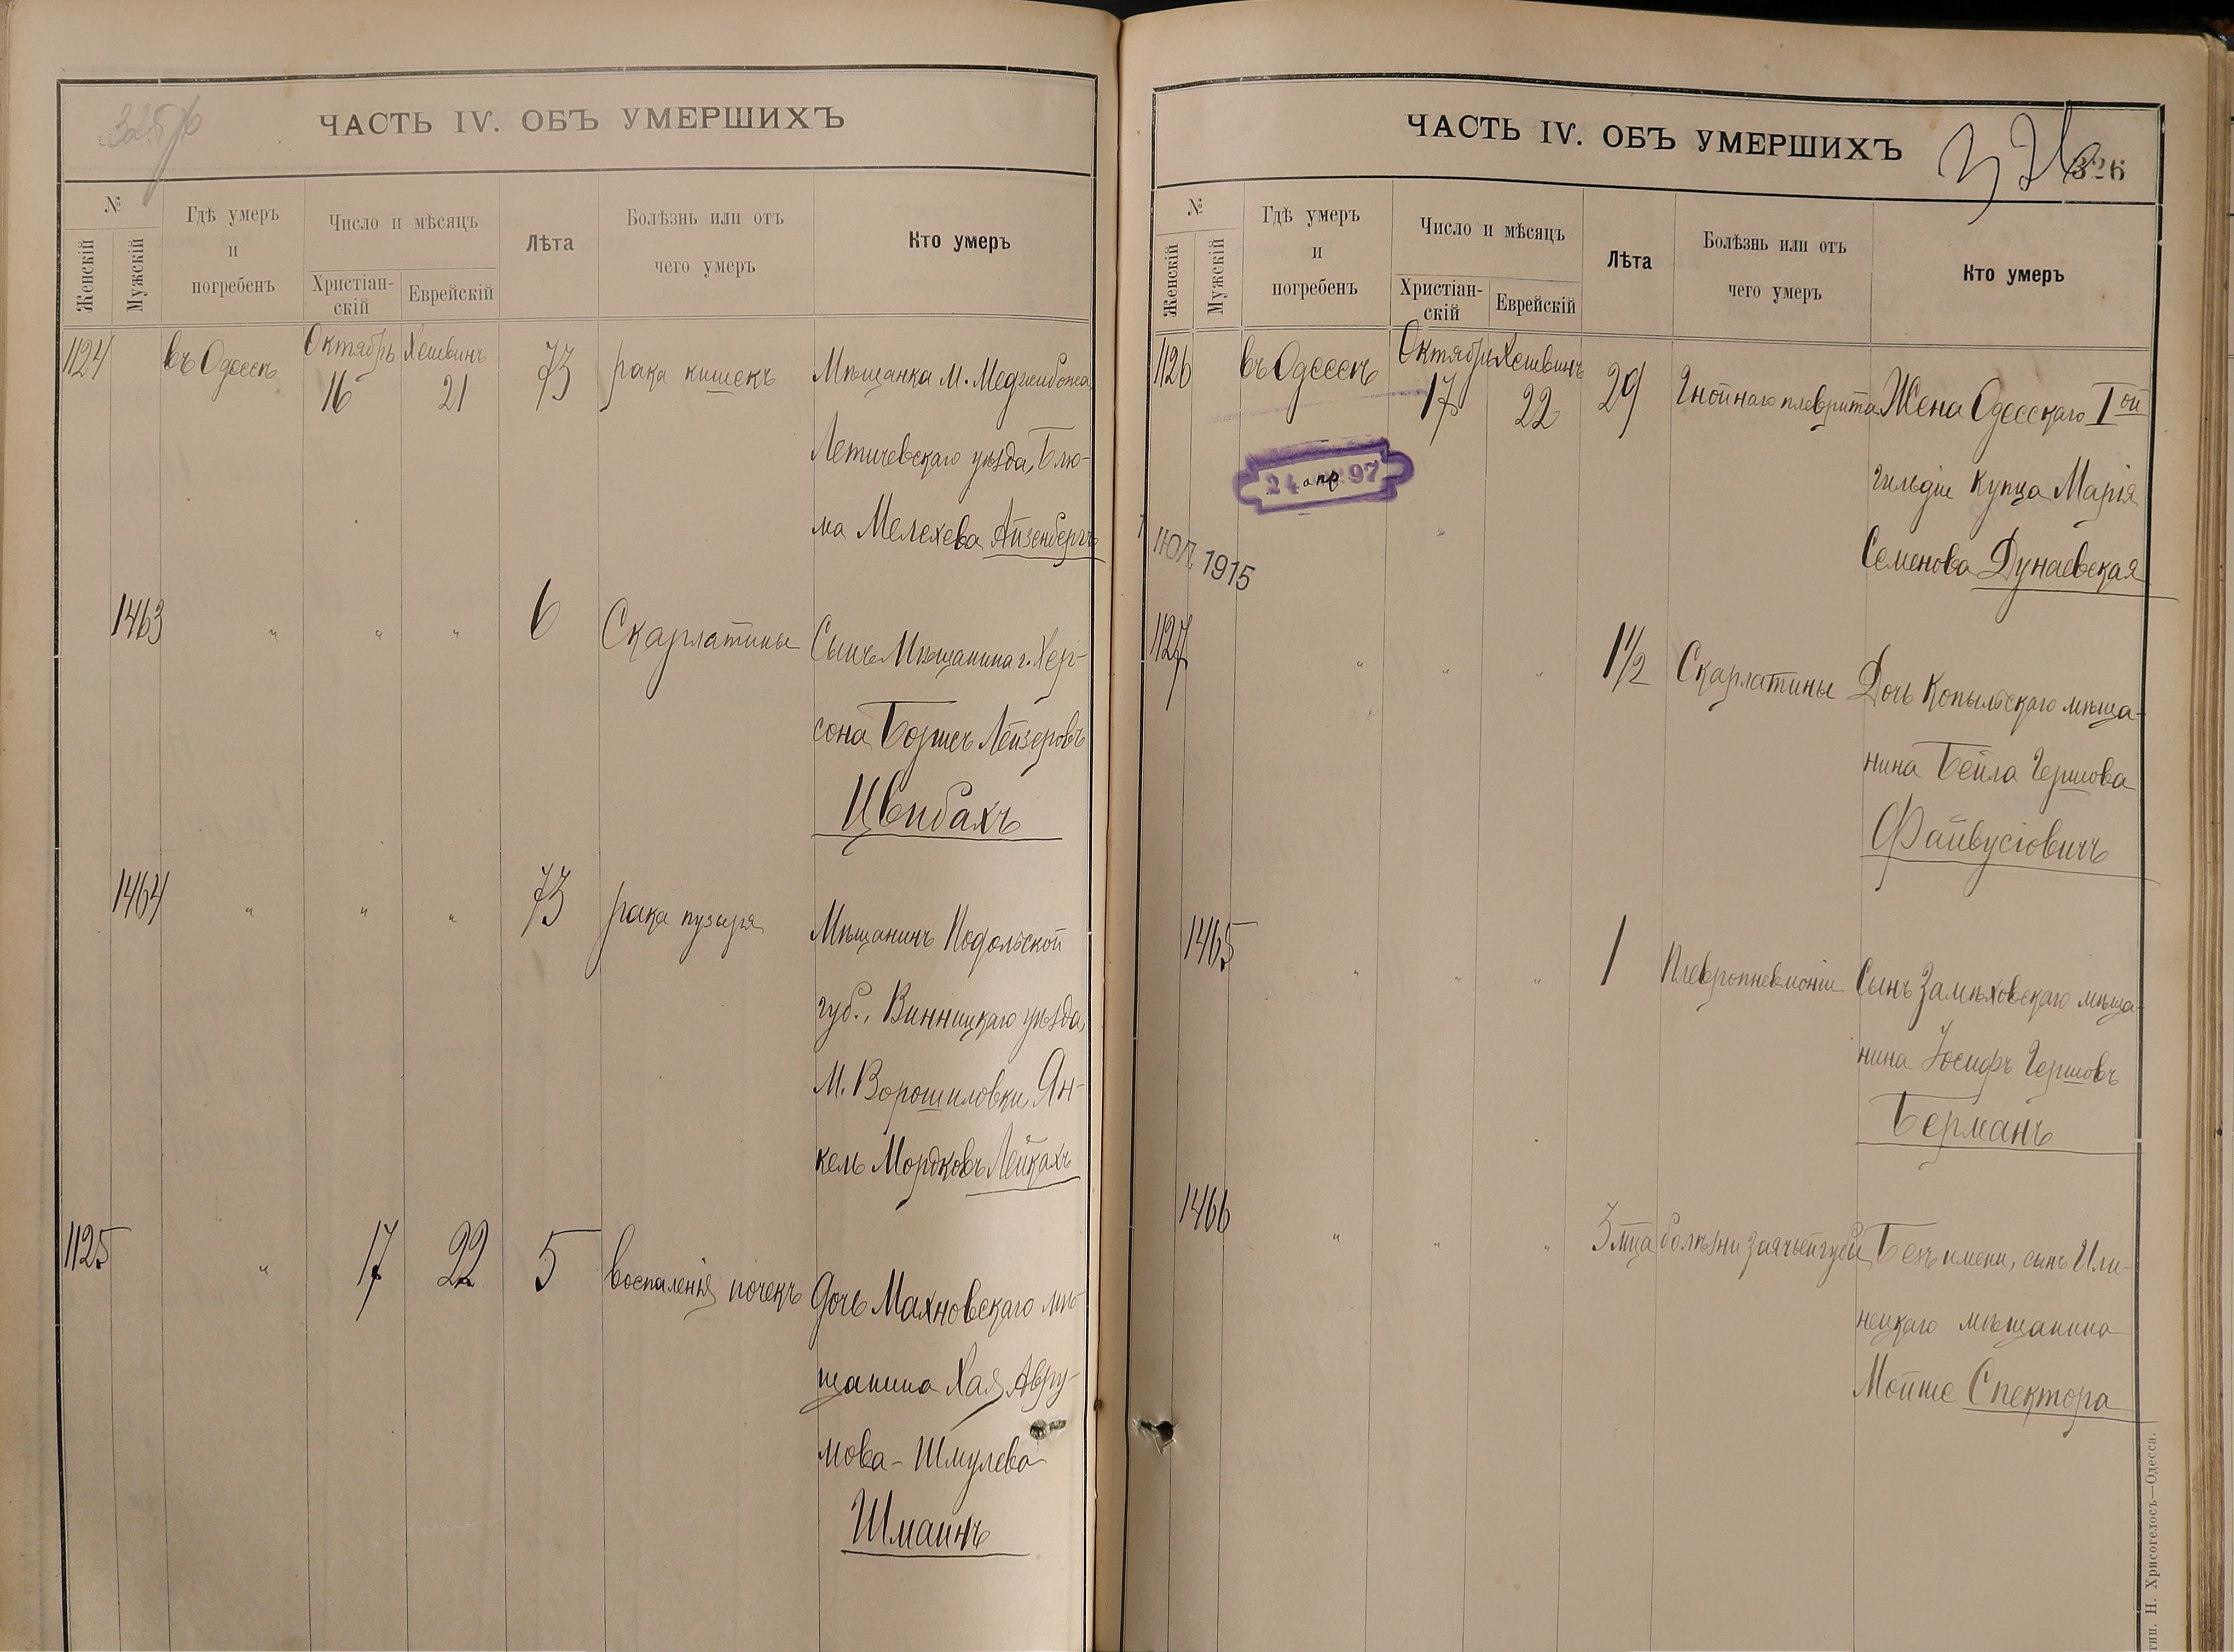 ЧАСТЬ IV. ОБЪ УМЕРШИХЪ
№
Женскій
Мужскій
Гдѣ умеръ
и
погребенъ
Число и мѣсяцъ
Христіан-
скій
Еврейскій
Лѣта
Болѣзнь или отъ
чего умеръ
Кто умеръ
1124 въ Одессѣ Октябрь 16 Хешвинъ 21 73 рака кишекъ Мѣщанка М. Меджибожа
Летичевскаго уѣзда, Блю-
ма Мелехева Айзенбергъ
1463 " " " 6 Скарлатины Сынъ Мѣщанина г. Хер-
сона Борисъ Лейзеровъ
Цвибахъ
1464 " " " 73 рака пузыря Мѣщанинъ Подольской
губ., Винницкаго уѣзда,
М. Ворошиловки, Ян-
кель Мордковъ Лейкахъ
1125 " 17 22 5 воспаленія почекъ Дочь Махновскаго мѣ-
щанина Хая Авру-
мова-Шмулева
Шмаинъ
ЧАСТЬ IV. ОБЪ УМЕРШИХЪ
326
326
№
Женскій
Мужскій
Гдѣ умеръ
и
погребенъ
Число и мѣсяцъ
Христіан-
скій
Еврейскій
Лѣта
Болѣзнь или отъ
чего умеръ
Кто умеръ
1126 въ Одессѣ Октябрь 17 Хешвинъ 22 29 Гнойнаго плеврита Жена Одесскаго Iой
гильдіи купца Марія
Семенова Дунаевская
24 апр 97
1 ІЮЛ. 1915
1127 " " " 1 1/2 Скарлатины Дочь Копыльскаго мѣща-
нина Бейла Гершова
Файвусіовичъ
1465 " " " 1 Плевропневмоніи Сынъ Замѣховскаго мѣща-
нина Іосифъ Гершовъ
Берманъ
1466 " " " 3 мца болѣзни заячьей губы Безъ имени, сынъ Или-
нецкаго мѣщанина
Мойше Спектора
тип. Н. Хрисогелосъ—Одесса.